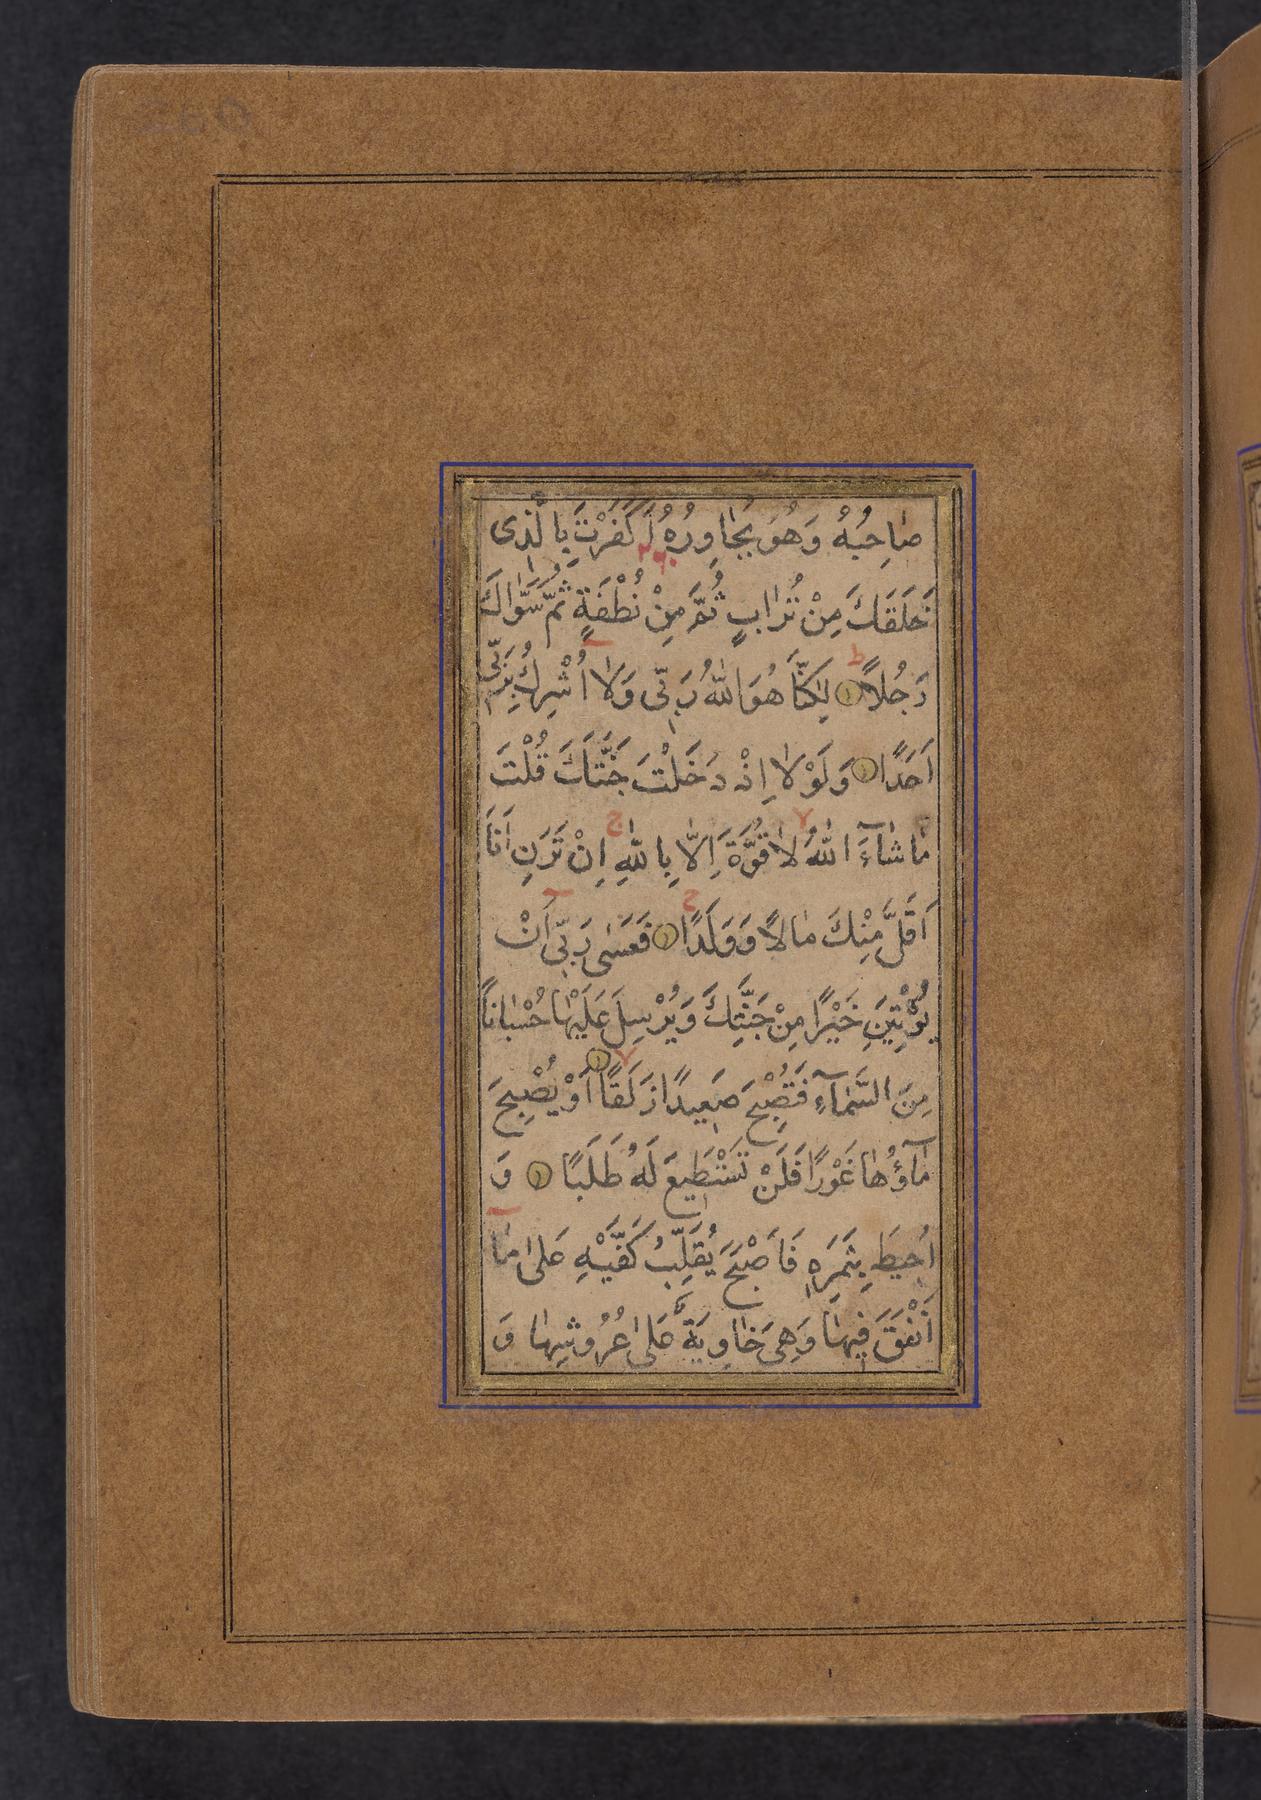 صٰاحِبُهُ وَهُوَ يُحٰاوِرُهُ اَكَفَرْتَ بِالَّذِى
خَلَقَكَ مِنْ تُرٰابٍ ثُمَّ مِنْ نُطْفَةٍ ثُمَّ سَوّٰاكَ
رَجُلًا لٰكِنَّا هُوَ اللّٰهُ رَبّٖى وَلٰا اُشْرِكُ بِرَبّٖى
اَحَدًا وَلَوْلٰا اِذْ دَخَلْتَ جَنَّتَكَ قُلْتَ
مٰا شٰآءَ اللّٰهُ لٰا قُوَّةَ اِلّٰا بِاللّٰهِ اِنْ تَرَنِ اَنَا
اَقَلَّ مِنْكَ مٰالًا وَ وَلَدًا فَعَسٰى رَبّٖى اَنْ
يُؤْتِيَنِ خَيْرًا مِنْ جَنَّتِكَ وَيُرْسِلَ عَلَيْهٰا حُسْبٰانًا
مِنَ السَّمٰآءِ فَتُصْبِحَ صَعٖيدًا زَلَقًا اَوْ يُصْبِحَ
مٰآؤُهٰا غَوْرًا فَلَنْ تَسْتَطٖيعَ لَهُ طَلَبًا وَ
اُحٖيطَ بِثَمَرِهٖ فَاَصْبَحَ يُقَلِّبُ كَفَّيْهِ عَلىٰ مٰا
اَنْفَقَ فٖيهٰا وَهِىَ خٰاوِيَةٌ عَلىٰ عُرُوشِهٰا وَ